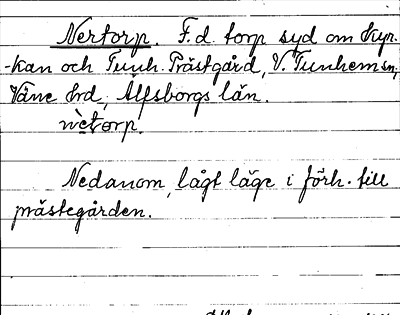 Nertorp. F.d. torp syd om kyr-
-kan och Tunh. Prästgård, V. Tunhem sn,
Väne hrd, Älfsborgs län.
nètorp.
Nedanom, lågt läge i förh. till
prästegården.